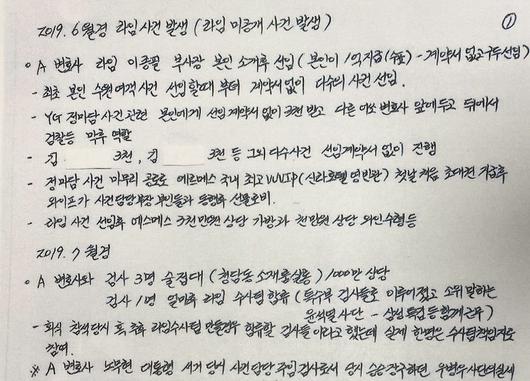 2019. 6월경 라임사건 발생 (라임 미공개 사건 발생)
①
○ A 변호사 라임 이종필 부사장 본인 소개후 선임 (본인이 1억지급(수표) - 계약서 없고 구두선임)
- 최초 본인 수원여객 사건 선임할때 부터 계약서없이 다수의 사건 선임.
- YG 정마담 사건관련 본인에게 선임계약서 없이 3천 받고 다른 여쏘 변호사 앞에두고 뒤에서
검찰등 막후 역할
- 김 3천, 김 3천 등 그외 다수사건 선임계약서 없이 진행
- 정마담 사건 마무리 공로로 에르메스 국내 최고 VVIP(신라호텔 영빈관) 첫날 처음 초대권 지급후
와이프가 사건담당부장 부인들과 동행후 선물로비.
- 라임 사건 선임후 에르메스 3천만원 상당 가방과 천만원 상당 와인수령등
2019. 7월경
○ A 변호사와 검사 3명 술접대 (청담동 소재룸살롱) 1000만 상당
검사 1명 얼마후 라임 수사팀 합류 (특수부 검사들로 이루어졌고 소위 말하는
윤석열 사단 - 삼성특검 등 함께근무)
- 회식 참석당시 혹 추후 라임수사팀 만들경우 합류할 검사들이라고 했는데 실제 한명은 수사팀책임자로
참여.
※ A 변호사 노무현 대통령 서거 당시 사건담당 주임검사로서 당시